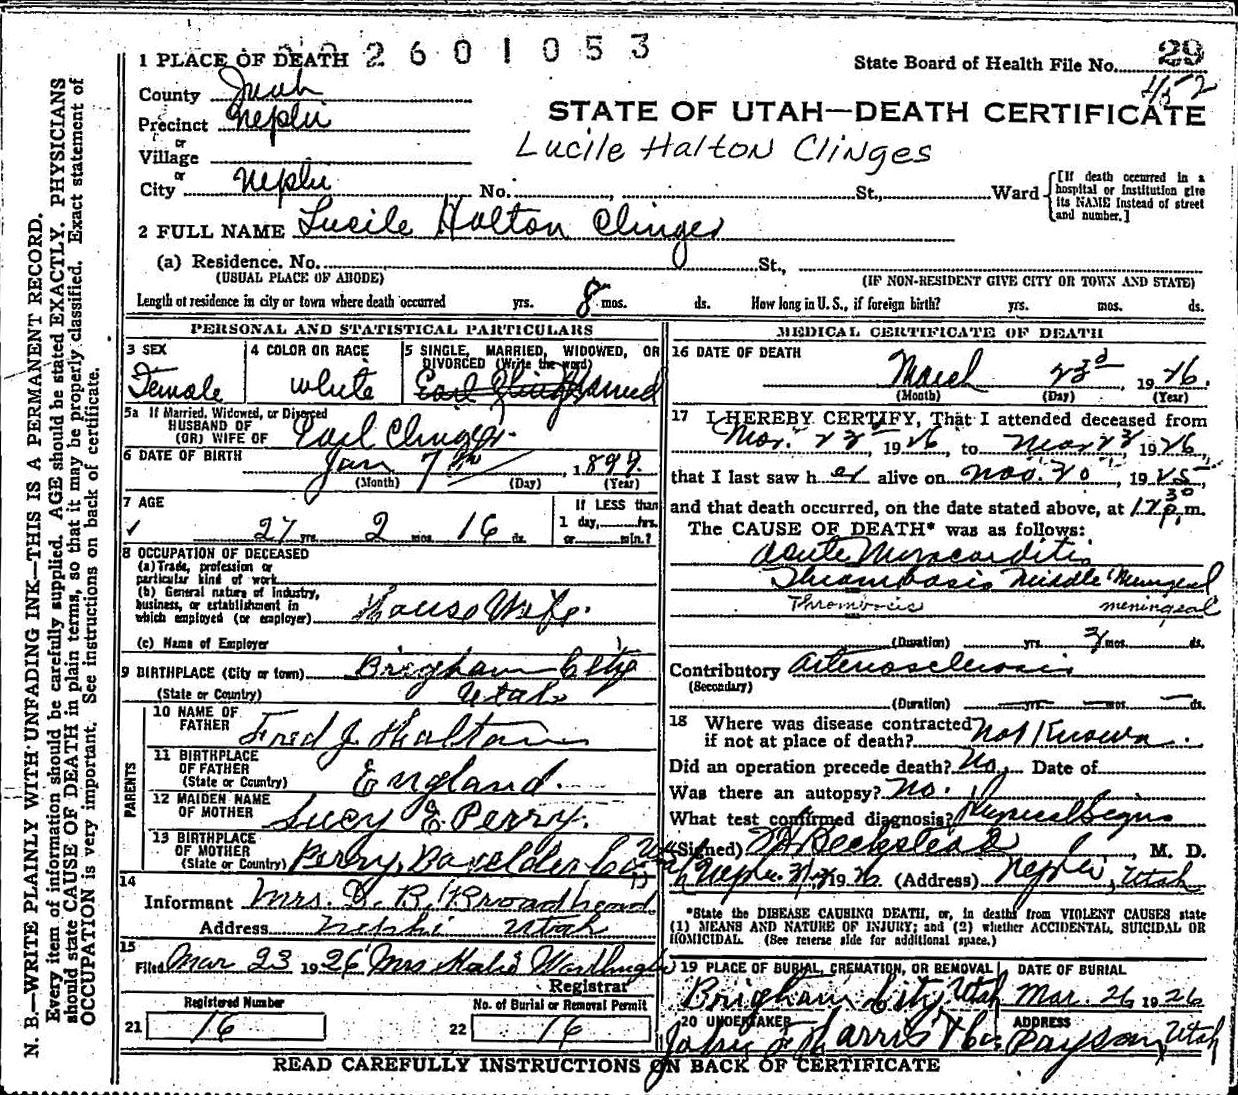 2601053
1 PLACE OF DEATH
State Board of Health File No. 29
452
County Juab
Precinct Nephi
or
Village
or
City Nephi No. , St., Ward
[If death occurred in a hospital or institution give its NAME instead of street and number.]
STATE OF UTAH—DEATH CERTIFICATE
Lucile Halton Clinges
2 FULL NAME Lucile Holton Clinger
(a) Residence. No. St.,
(USUAL PLACE OF ABODE) (IF NON-RESIDENT GIVE CITY OR TOWN AND STATE)
Length of residence in city or town where death occurred yrs. 8 mos. ds. How long in U. S., if foreign birth? yrs. mos. ds.
PERSONAL AND STATISTICAL PARTICULARS
3 SEX
Female
4 COLOR OR RACE
white
5 SINGLE, MARRIED, WIDOWED, OR DIVORCED (Write the word)
5a If Married, Widowed, or Divorced
HUSBAND OF
(OR) WIFE OF Earl Clinger.
6 DATE OF BIRTH Jan 7th, 1899.
(Month) (Day) (Year)
7 AGE
27 yrs. 2 mos. 16 ds.
If LESS than
1 day, hrs.
or min.?
8 OCCUPATION OF DECEASED
(a) Trade, profession or
particular kind of work
(b) General nature of industry,
business, or establishment in
which employed (or employer) House Wife.
(c) Name of Employer
9 BIRTHPLACE (City or town) Brigham City
(State or Country) Utah
PARENTS
10 NAME OF
FATHER Fred J. Halton
11 BIRTHPLACE
OF FATHER
(State or Country) England.
12 MAIDEN NAME
OF MOTHER Lucy E. Perry.
13 BIRTHPLACE
OF MOTHER
(State or Country) Perry, Boxelder Co
14
Informant Mrs. D. B. Broadhead
Address Nephi Utah
15
Filed Mar 23 1926 Mrs Worthington
Registrar
Registered Number
21 16
No. of Burial or Removal Permit
22 16
MEDICAL CERTIFICATE OF DEATH
16 DATE OF DEATH
March 23d, 1926.
(Month) (Day) (Year)
17 I HEREBY CERTIFY, That I attended deceased from
Mar. 23, 1926 to Mar 23, 1926,
that I last saw her alive on Nov. 20, 1925,
and that death occurred, on the date stated above, at 12 30 p.m.
The CAUSE OF DEATH* was as follows:
Acute Myocarditis
Thrombosis Middle Meningeal
Thrombosis meningeal
(Duration) yrs. 3 mos. ds.
Contributory Arteriosclerosis
(Secondary)
(Duration) yrs. mos. ds.
18 Where was disease contracted
if not at place of death? Not Known.
Did an operation precede death? No, Date of
Was there an autopsy? No.
What test confirmed diagnosis? Physical Signs
(Signed) Beckstead, M. D.
(Address) Nephi, Utah
*State the DISEASE CAUSING DEATH, or, in deaths from VIOLENT CAUSES state
(1) MEANS AND NATURE OF INJURY; and (2) whether ACCIDENTAL, SUICIDAL OR
HOMICIDAL. (See reverse side for additional space.)
19 PLACE OF BURIAL, CREMATION, OR REMOVAL
Brigham City, Utah
DATE OF BURIAL
Mar. 26 1926
20 UNDERTAKER
Harris
ADDRESS
Payson, Utah
READ CAREFULLY INSTRUCTIONS ON BACK OF CERTIFICATE
N. B.—WRITE PLAINLY WITH UNFADING INK—THIS IS A PERMANENT RECORD.
Every item of information should be carefully supplied. AGE should be stated EXACTLY. PHYSICIANS
should state CAUSE OF DEATH in plain terms, so that it may be properly classified. Exact statement of
OCCUPATION is very important. See instructions on back of certificate.